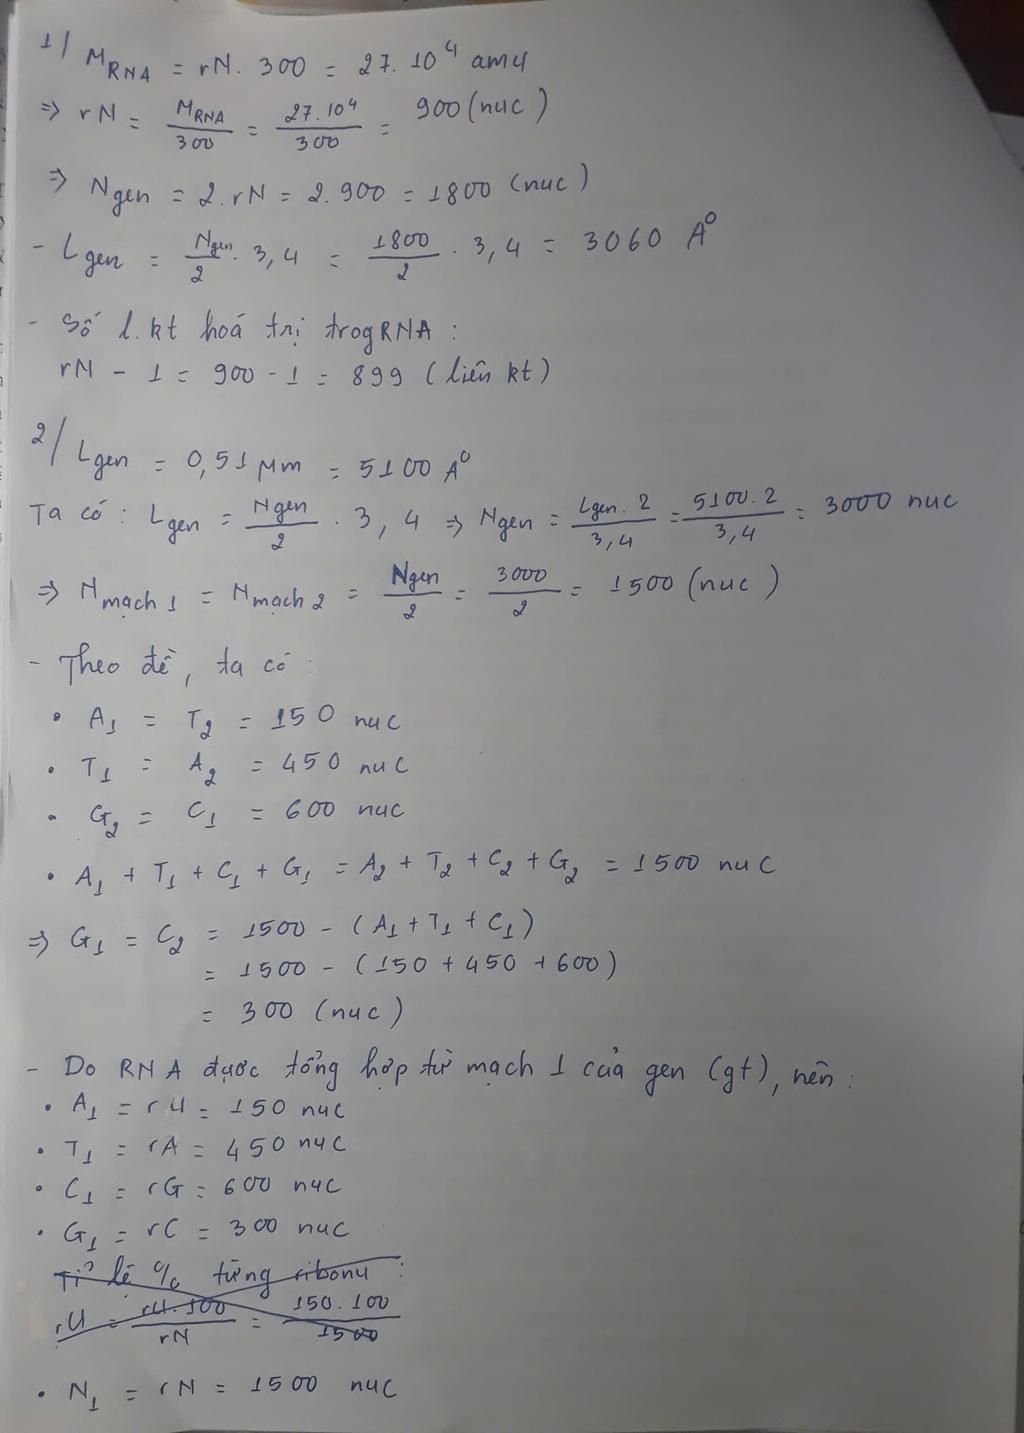 1/ M_RNA = rN. 300 = 27. 10⁴ amu
=> rN = M_RNA/300 = 27.10⁴/300 = 900 (nuc)
=> Ngen = 2. rN = 2. 900 = 1800 (nuc)
- Lgen = Ngen/2 . 3,4 = 1800/2 . 3,4 = 3060 A⁰
- Số l.kt hoá trị trog RNA :
rN - 1 = 900 - 1 = 899 (liên kt)
2/ Lgen = 0,51 µm = 5100 A⁰
Ta có : Lgen = Ngen/2 . 3,4 => Ngen = Lgen. 2/3,4 = 5100. 2/3,4 = 3000 nuc
=> N mạch 1 = N mạch 2 = Ngen/2 = 3000/2 = 1500 (nuc)
- Theo đề, ta có :
• A₁ = T₂ = 150 nuc
• T₁ = A₂ = 450 nuc
• G₂ = C₁ = 600 nuc
• A₁ + T₁ + C₁ + G₁ = A₂ + T₂ + C₂ + G₂ = 1500 nuc
=> G₁ = C₂ = 1500 - (A₁ + T₁ + C₁)
= 1500 - (150 + 450 + 600)
= 300 (nuc)
- Do RNA được tổng hợp từ mạch 1 của gen (gt), nên :
• A₁ = rU = 150 nuc
• T₁ = rA = 450 nuc
• C₁ = rG = 600 nuc
• G₁ = rC = 300 nuc
Tỉ lệ % từng ribonu :
rU = rU. 100/rN = 150. 100/1500
• N₁ = rN = 1500 nuc